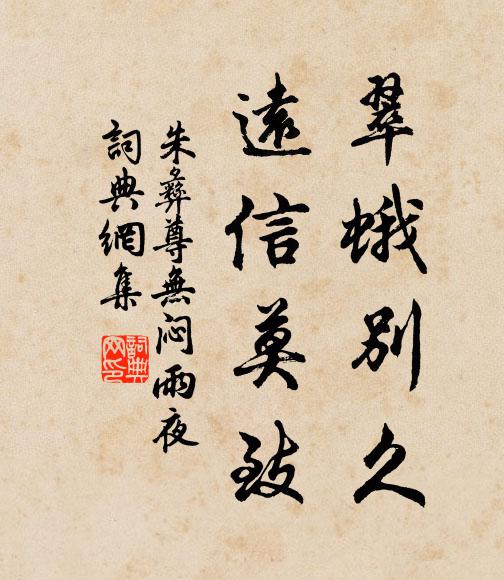 翠蛾別久
遠信莫致
朱彝尊無悶雨夜
詞典網集
詞典
网印